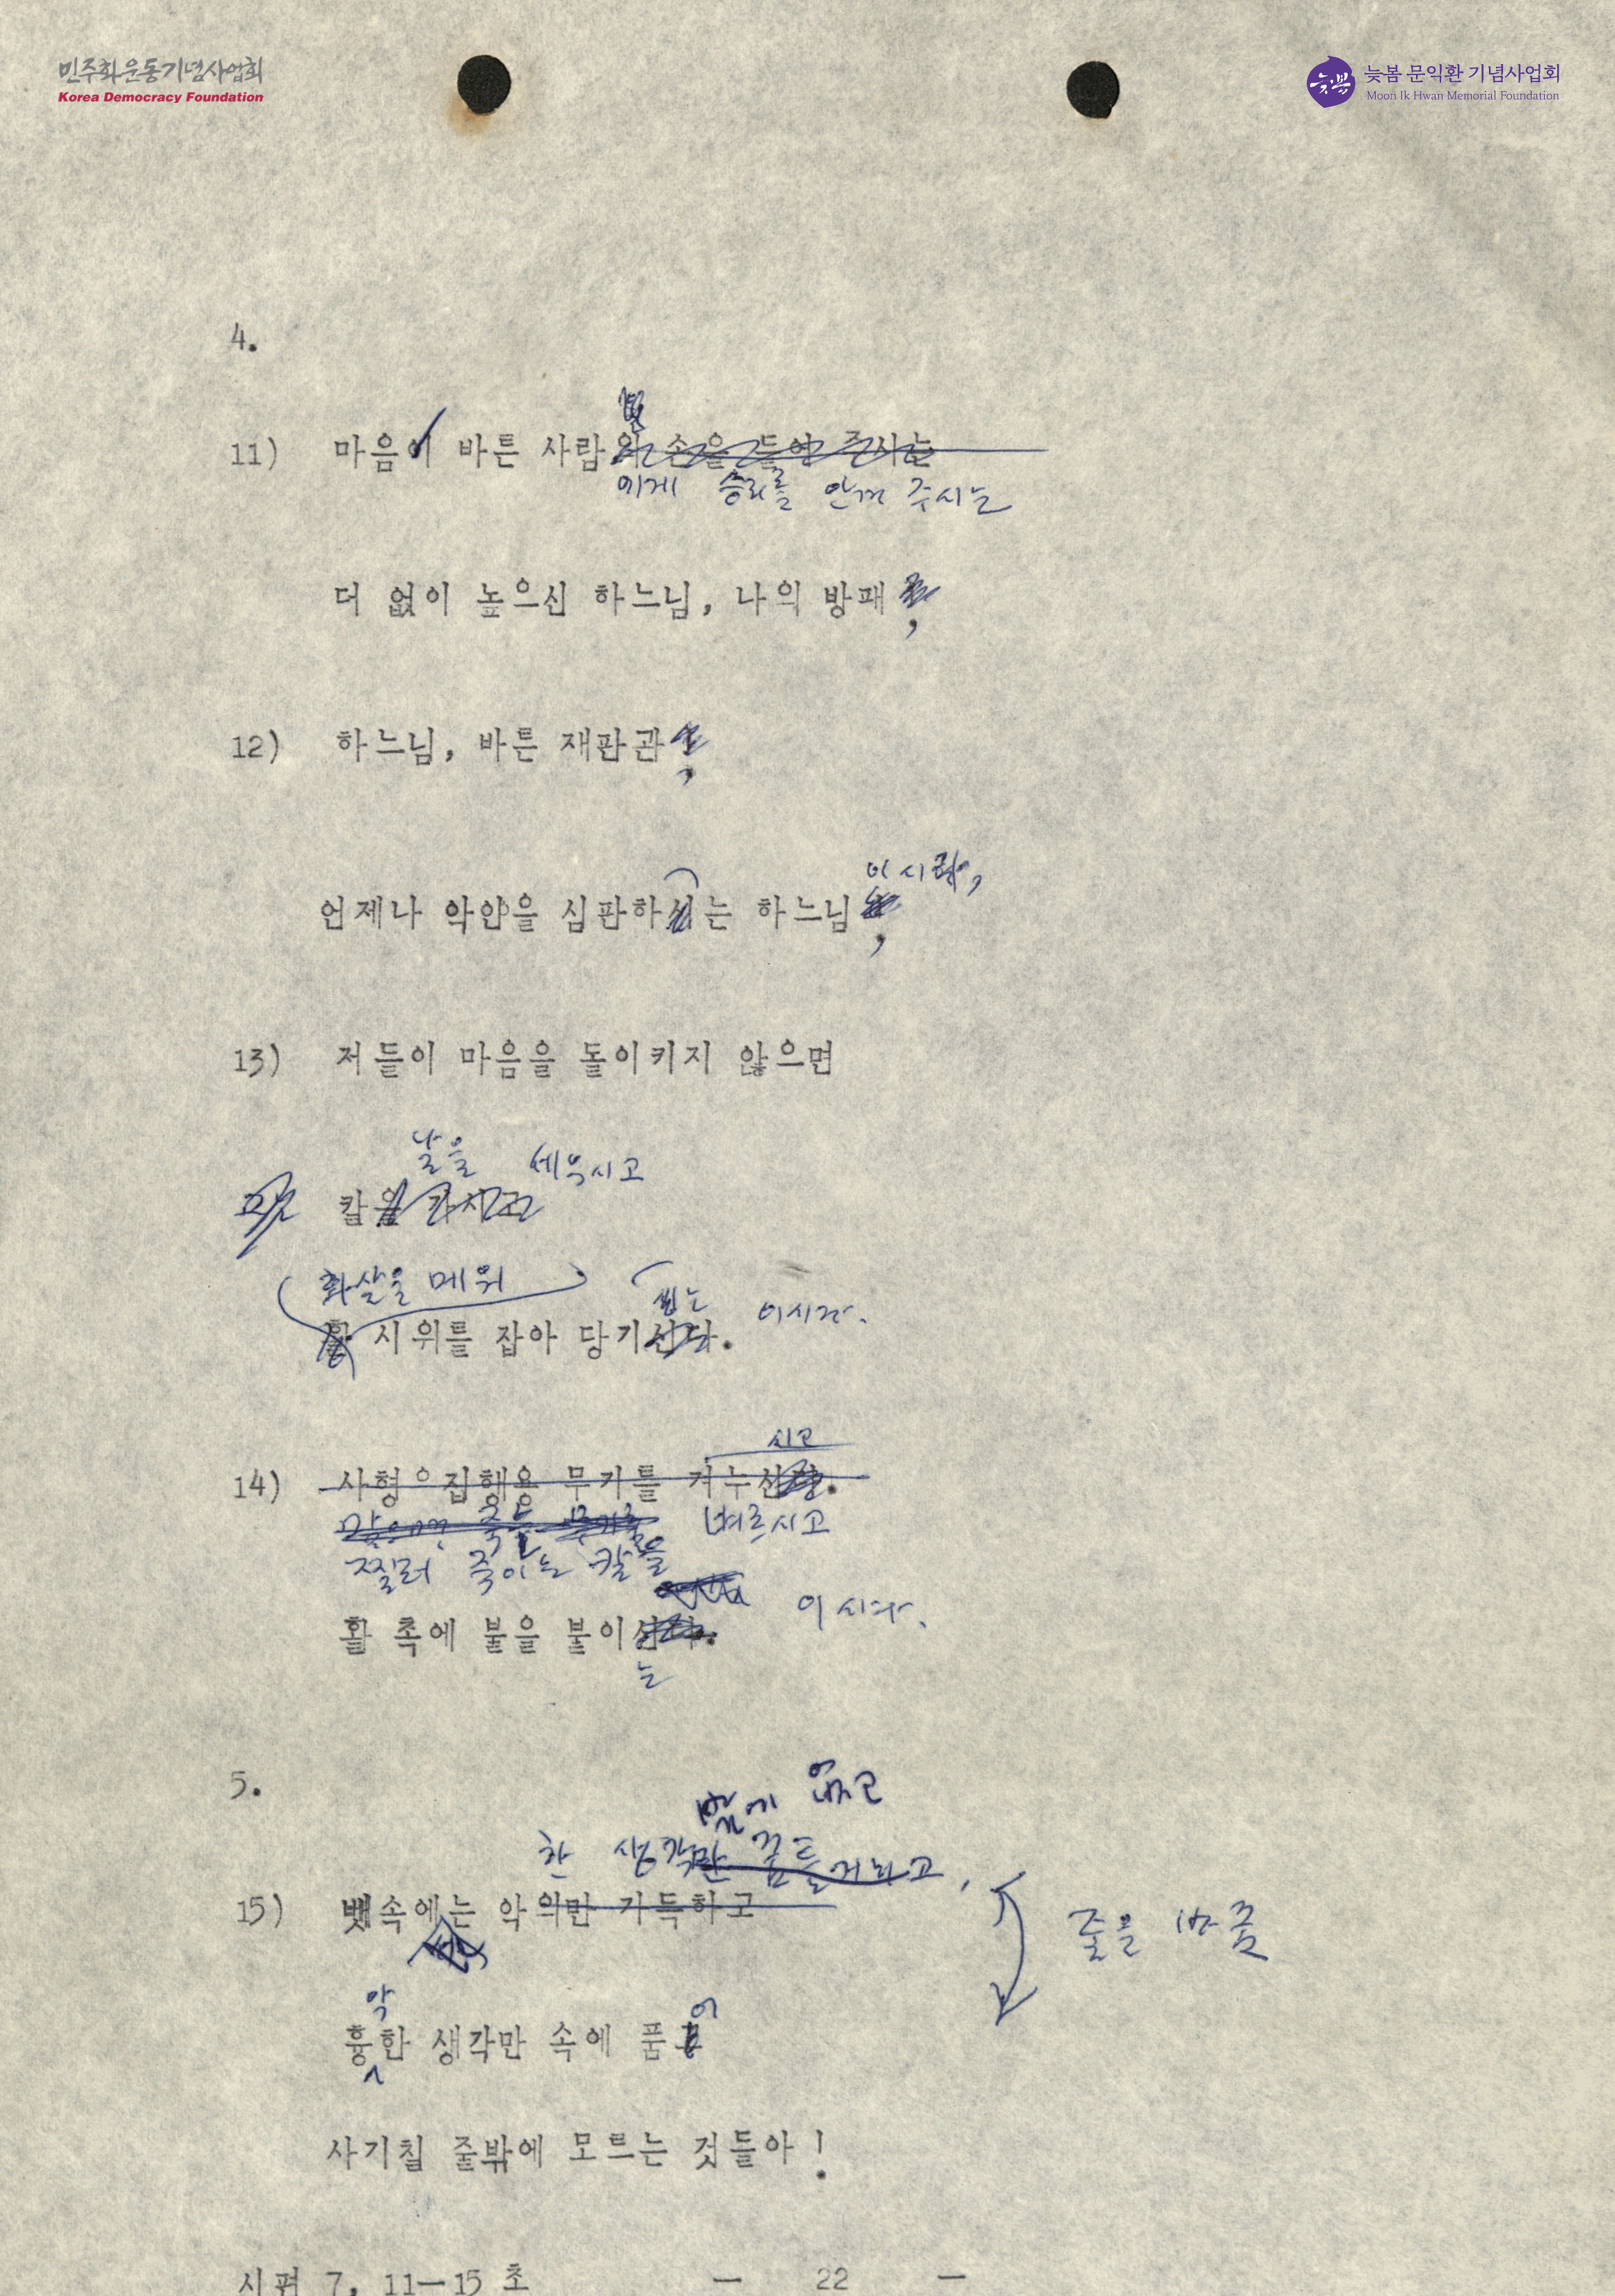 민주화운동기념사업회
Korea Democracy Foundation
늦봄 문익환 기념사업회
Moon Ik Hwan Memorial Foundation
4.
11) 마음이 바른 사람의 손을 들어 주시는
에게 승리를 안겨 주시는
더 없이 높으신 하느님, 나의 방패
,
12) 하느님, 바른 재판관
,
이시라,
언제나 악인을 심판하시는 하느님
,
13) 저들이 마음을 돌이키지 않으면
날을 세우시고
칼을 가시고
화살을 메워
는 이시라.
활 시위를 잡아 당기신다.
시고
14) 사형 집행용 무기를 겨누신다.
맞으면 죽는 무기를 벼르시고
찔러 죽이는 칼을
이시다.
활 촉에 불을 붙이신다.
는
5.
밖에 없고
한 생각만 꿈틀거리고,
15) 뱃속에는 악의만 가득하고
줄을 바꿈
악
어
흉한 생각만 속에 품고
사기칠 줄밖에 모르는 것들아!
시편 7, 11—15 초 — 22 —